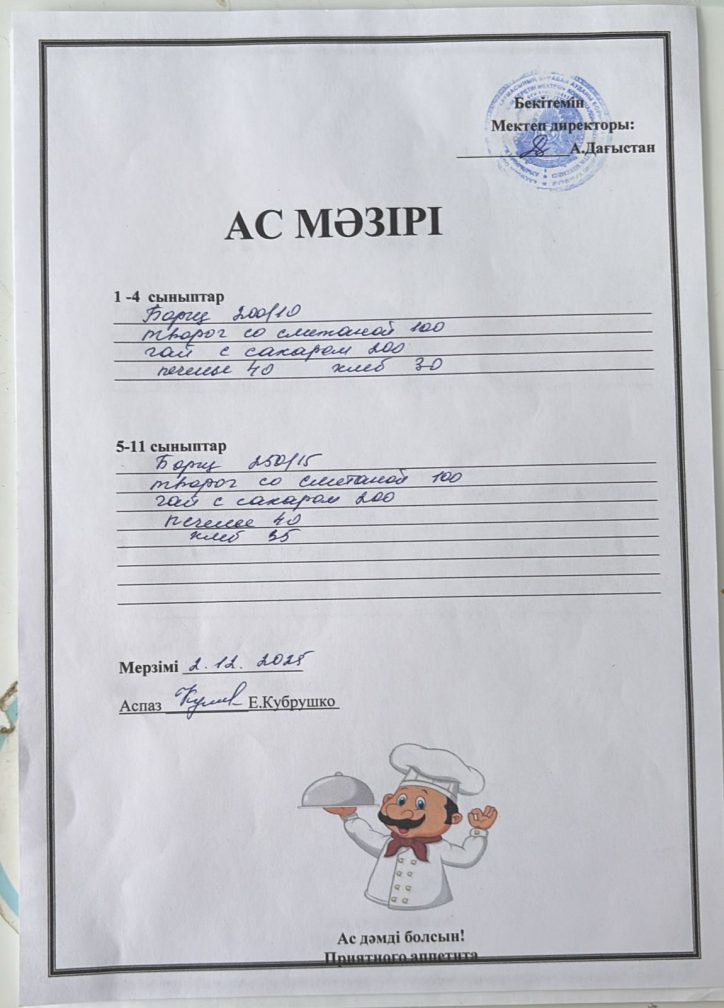 Бекітемін
Мектеп директоры:
А.Дағыстан
АС МӘЗІРІ
1 -4 сыныптар
Борщ 200/10
творог со сметаной 100
чай с сахаром 200
печенье 40 хлеб 30
5-11 сыныптар
Борщ 250/15
творог со сметаной 100
чай с сахаром 200
печенье 40
хлеб 35
Мерзімі 2.12. 2025
Аспаз Е.Кубрушко
Ас дәмді болсын!
Приятного аппетита